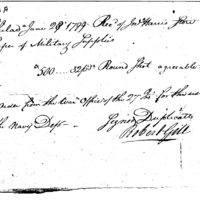 Philad.a June 28th 1799. Rec.d of Jno Harris Store
keeper of Military Supplies
"500 .... 32 pd.s Round Shot agreeable
order from the War Office of the 27 Ins.t for the use
the Navy Dep.t
Signed Duplicates
Robert Gill